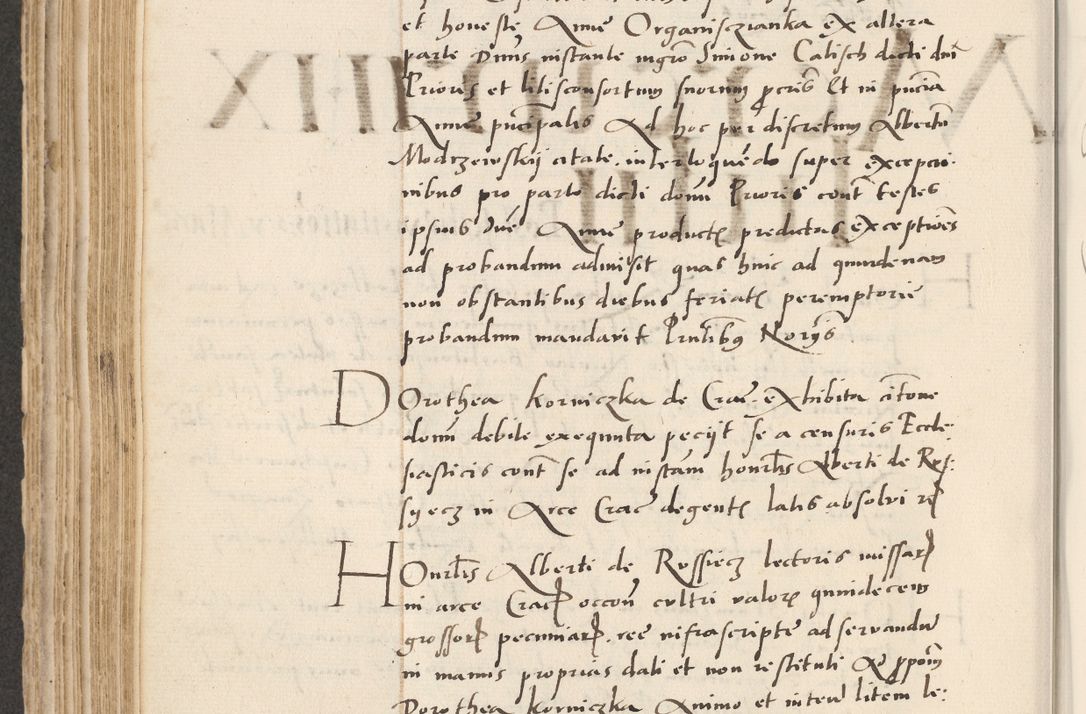 et honeste Anne Organisczianka ex altera
parte Dnus instante mgro Simone Calisch dicti dni
Prioris et litisconsortum suorum pcris Et in pncia
Anne principalis Ad hoc per discretum Albertu
Modrzewskij citate. interloquedo super excepcio
nibus pro parte dicti domi Prioris cont testes
ipsius due Anne product predictas exceptiones
ad probandum admisit quas huic ad quindenam
non obstantibus diebus feriat peremptorie
probandum mandavit Pntibus Norys
Dorothea Korniczka de Crac. exhibita citone
domi debite exequuta pecijt se a censuris Eccle-
siasticis cont se ad instam honrlis Alberti de Rus-
syecz in Arce Crac degent latis absolvi r
Honrlis Alberti de Russiecz lectoris missar
in arce Crac occon cultri valor quindecem
grossor pecuniar. ree infrascripte ad servandu
in manus proprias dati et non restituti Ac ppom
Dorothea Korniczka Animo et inten litem le-